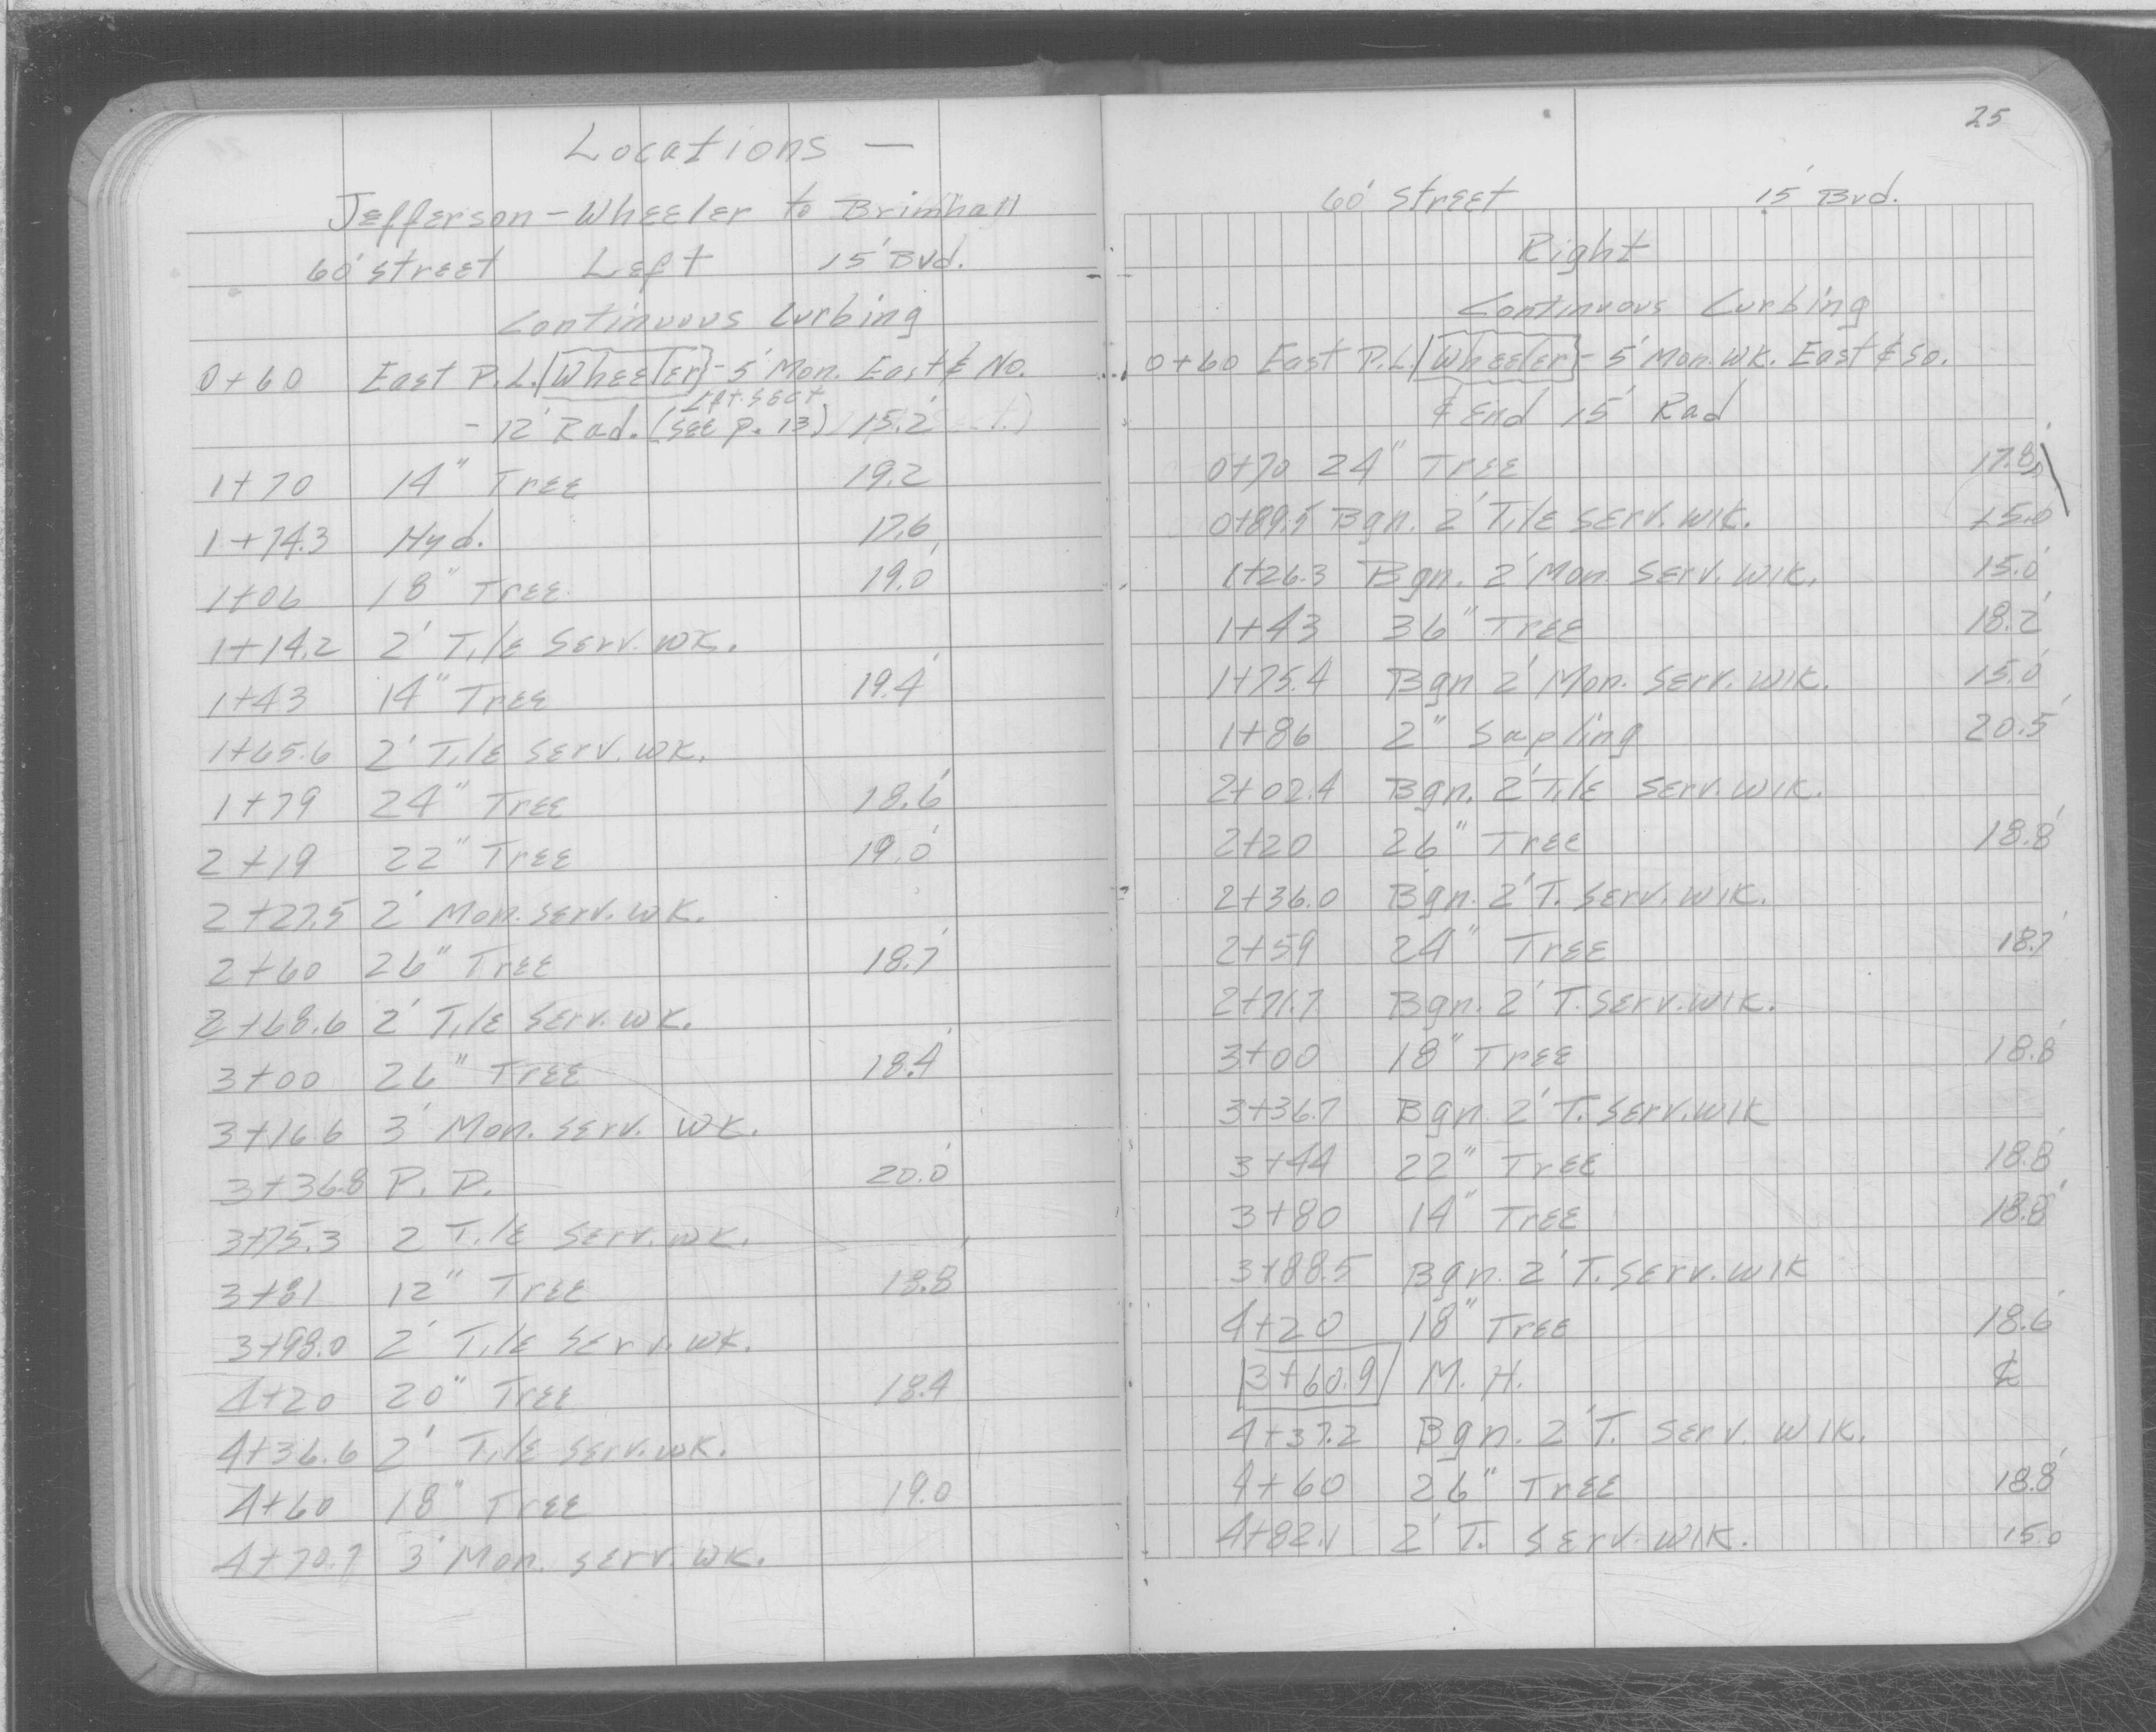 Locations —
Jefferson - Wheeler to Brimhall
60' street Left 15' Bvd.
Continuous Curbing
0+60 East P.L. Wheeler - 5' Mon. East & No.
Lft. Sect.
- 12' Rad. (See p. 13) 15.2'
1+70 14" Tree 19.2
1+74.3 Hyd. 17.6
1+06 18" Tree 19.0'
1+14.2 2' Tile Serv. wk.
1+43 14" Tree 19.4'
1+65.6 2' Tile Serv. wk.
1+79 24" Tree 18.6'
2+19 22" Tree 19.0'
2+27.5 2' Mon. Serv. wk.
2+60 26" Tree 18.7'
2+68.6 2' Tile Serv. wk.
3+00 26" Tree 18.4'
3+16.6 3' Mon. Serv. wk.
3+36.8 P. P. 20.0'
3+75.3 2 Tile Serv. wk.
3+81 12" Tree 18.8'
3+98.0 2' Tile Serv. wk.
4+20 20" Tree 18.4
4+36.6 2' Tile Serv. wk.
4+60 18" Tree 19.0
4+70.7 3' Mon. Serv. wk.
25
60' Street 15' Bvd.
Right
Continuous Curbing
0+60 East P.L. Wheeler - 5' Mon. wk. East & So.
& End 15' Rad
0+70 24" Tree 17.8'
0+89.5 Bgn. 2' Tile Serv. wlk. 15.0'
1+26.3 Bgn. 2' Mon. Serv. wlk. 15.0'
1+43 36" Tree 18.2'
1+75.4 Bgn 2' Mon. Serv. wlk. 15.0'
1+86 2" Sapling 20.5'
2+02.4 Bgn. 2' Tile Serv. wlk.
2+20 26" Tree 18.8'
2+36.0 Bgn. 2' T. Serv. wlk.
2+59 24" Tree 18.7'
2+71.7 Bgn. 2' T. Serv. wlk.
3+00 18" Tree 18.8'
3+36.7 Bgn. 2' T. Serv. wlk
3+44 22" Tree 18.8'
3+80 14" Tree 18.8'
3+88.5 Bgn. 2' T. Serv. wlk
4+20 18" Tree 18.6'
3+60.9 M. H. ℄
4+37.2 Bgn. 2' T. Serv. wlk.
4+60 26" Tree 18.8'
4+82.1 2' T. Serv. wlk. 15.0